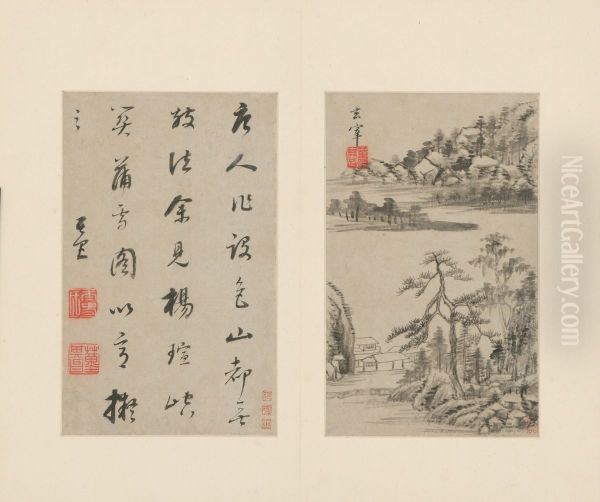 唐人作設色山都無
皴法余見楊
蒲雪圖以意擬
之
玄宰
玄宰
NiceArtGallery.com